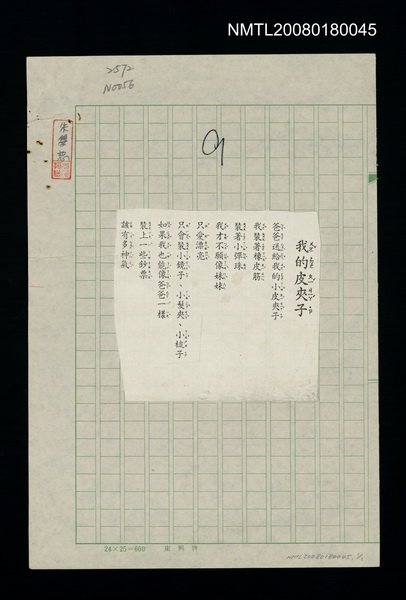 NMTL20080180045
2572
N0056
9
朱學恕
我的皮夾子
爸爸送給我的小皮夾子
我裝著橡皮筋
裝著小彈珠
我才不願像妹妹
只愛漂亮
只會裝小鏡子、小髮夾、小梳子
如果我也能像爸爸一樣
裝上一些鈔票
該有多神氣
24×25=600
NMTL20080180045, 1/1